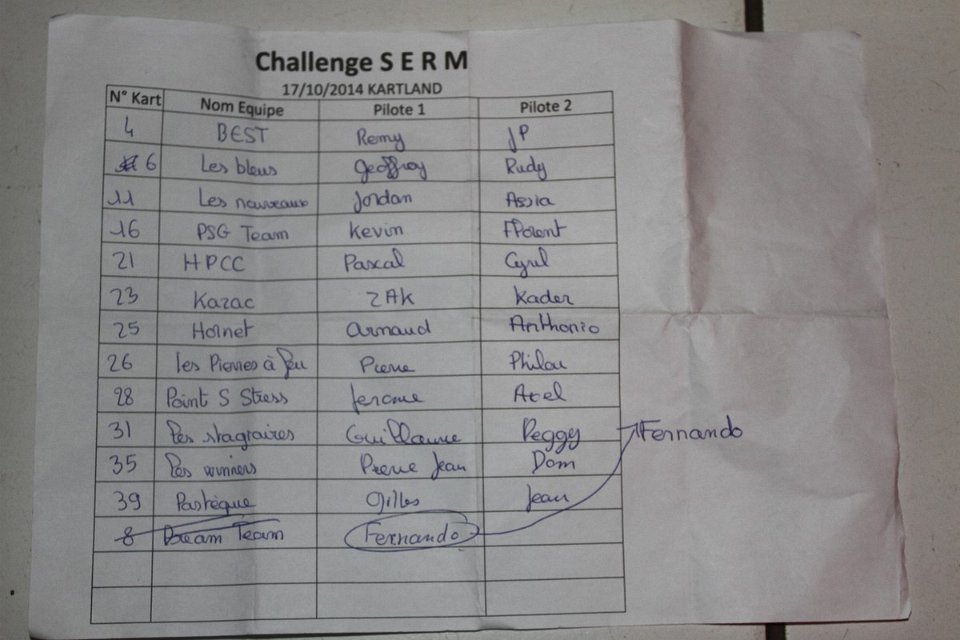 Challenge S E R M
17/10/2014 KARTLAND
N° Kart Nom Equipe Pilote 1 Pilote 2
4 BEST Remy JP
6 Les bleus Geoffroy Rudy
11 Les nouveaux Jordan Assia
16 PSG Team Kevin Florent
21 HPCC Pascal Cyril
23 Kazac ZAK Kader
25 Hornet Arnaud Anthonio
26 Les Pierres à feu Pierre Philou
28 Point S Stress Jerome Axel
31 Les stagiaires Guillaume Peggy Fernando
35 Les winners Pierre Jean Dom
39 Pastèque Gilles Jean
8 Dream Team Fernando